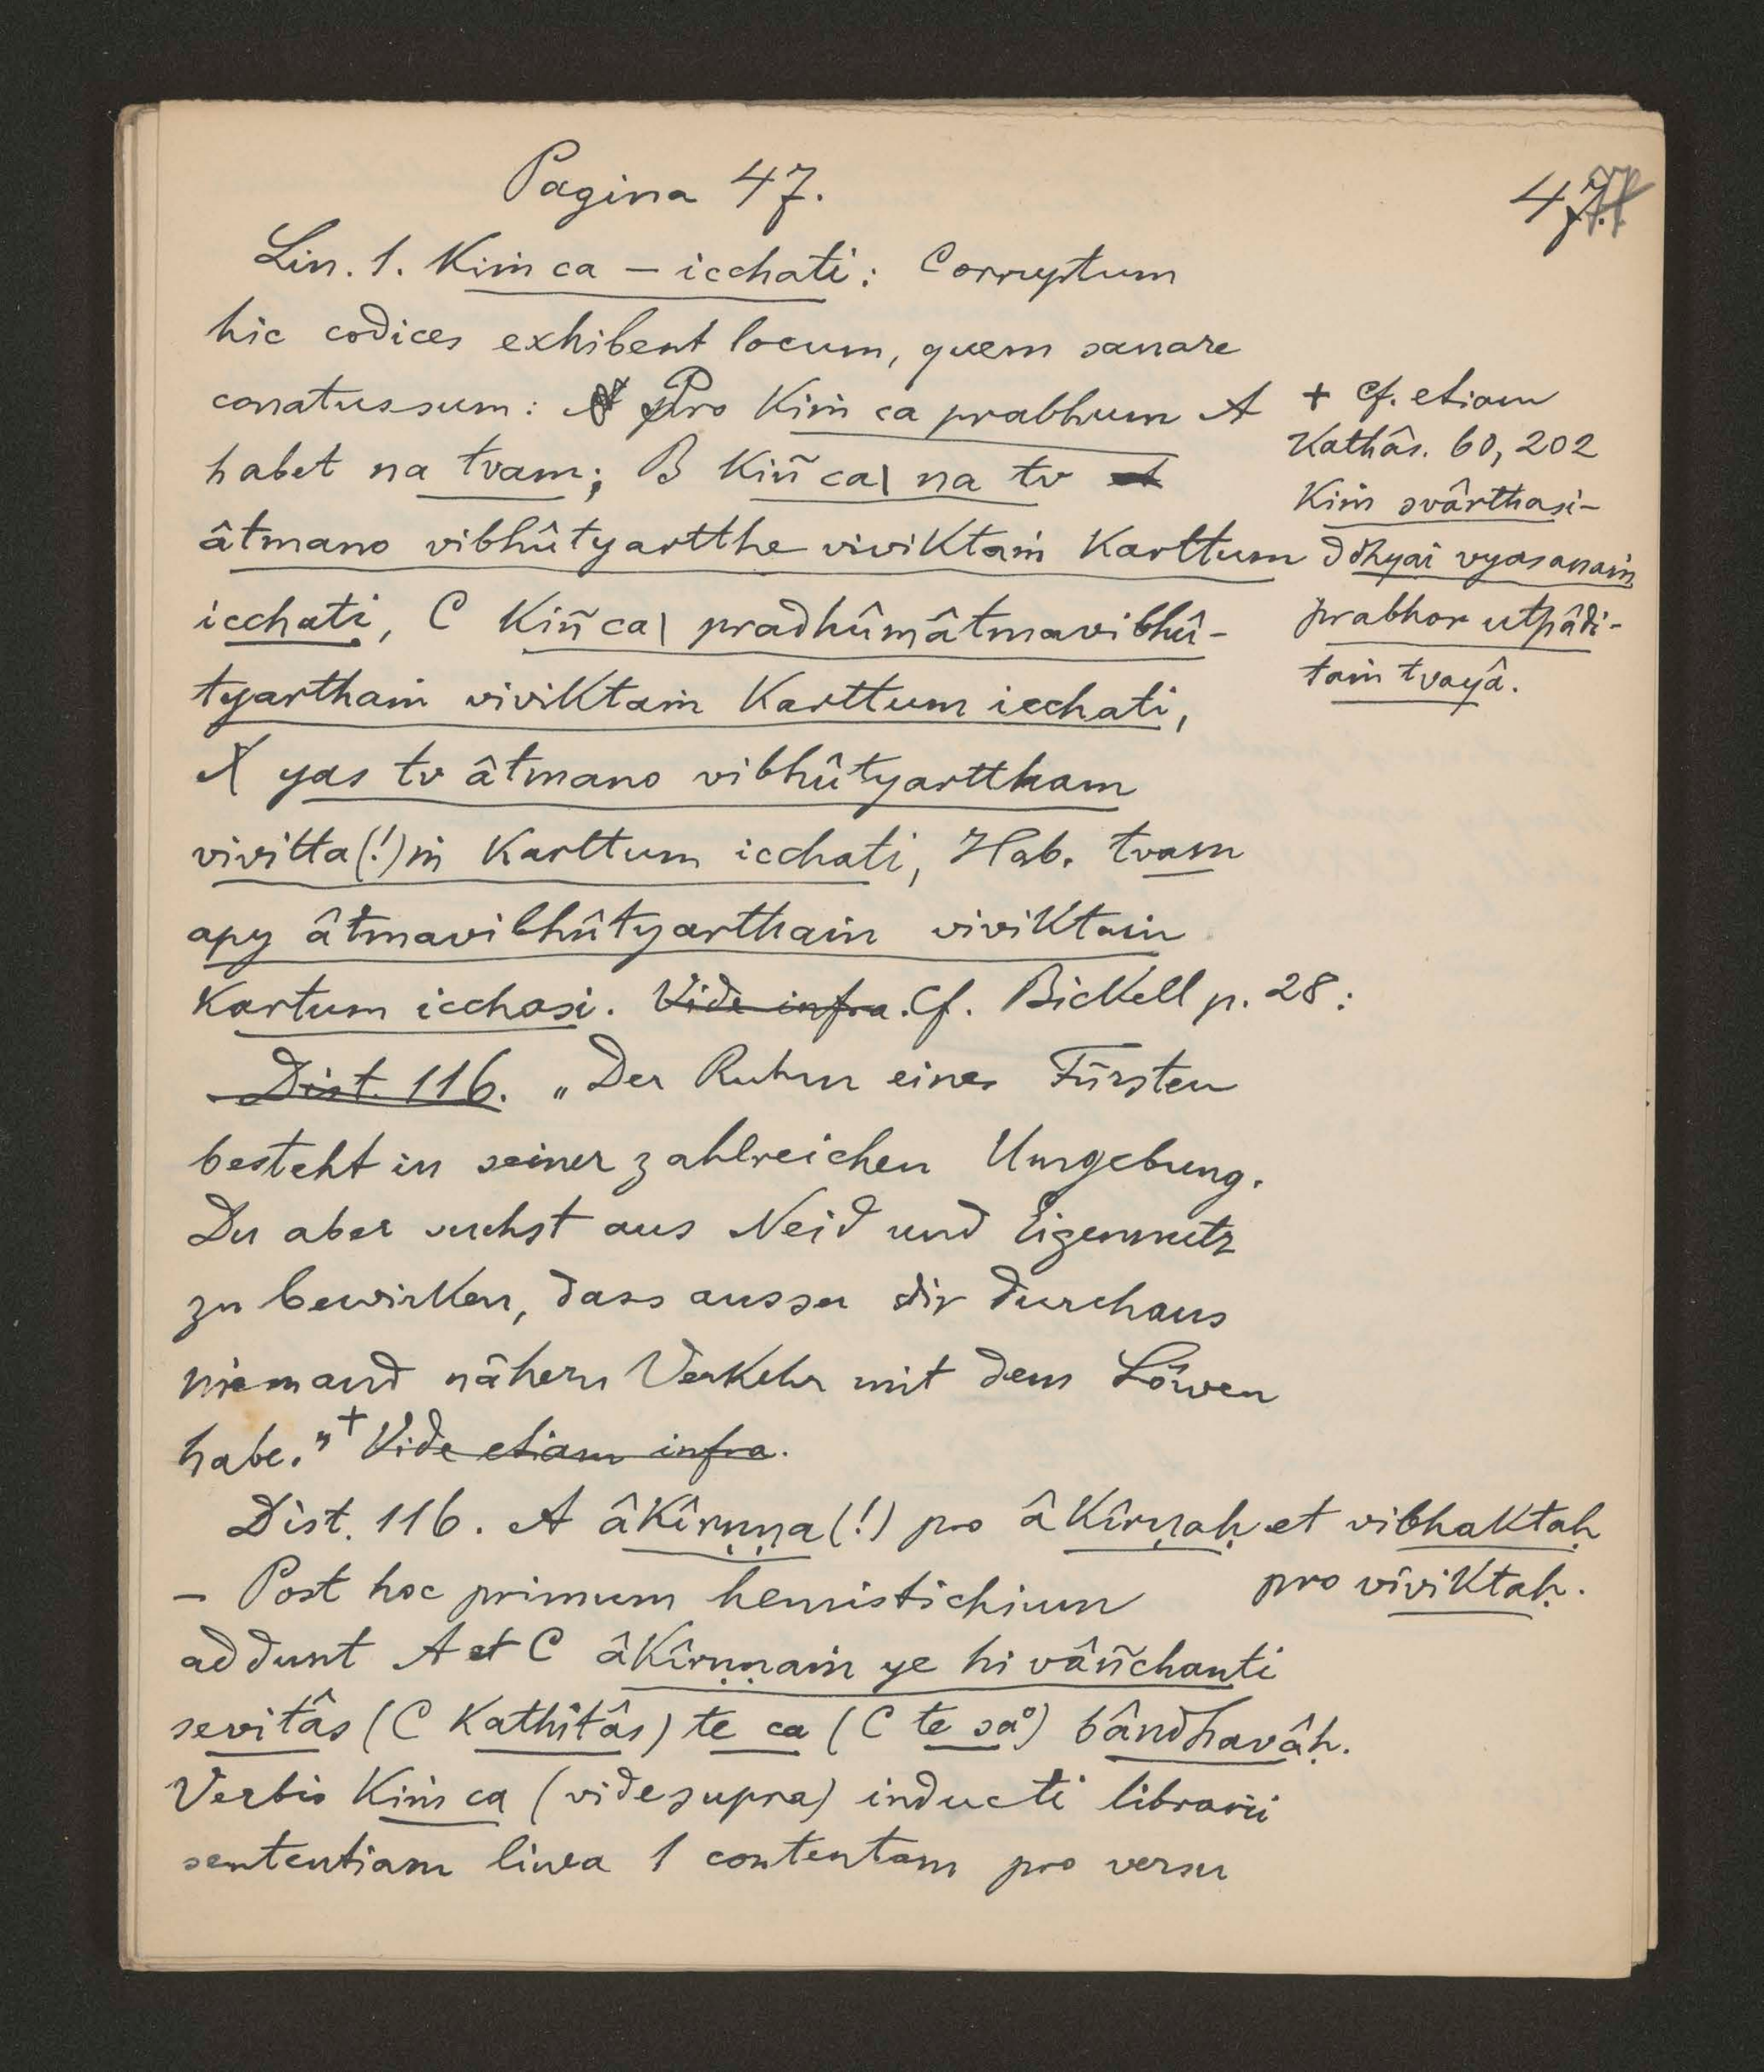 Pagina 47.
47.
Lin. 1. Kiṁ ca – icchati: Corruptum
hic codices exhibent locum, quem sanare
conatus sum: Pro Kiṁ ca prabhum A
habet na tvam; B Kiñ ca| na tv
âtmano vibhûtyartthe viviktaṁ karttum
icchati, C Kiñ ca| pradhûmâtmavibhû-
tyarthaṁ viviktaṁ karttum icchati,
N yas tv âtmano vibhûtyarttham
vivitta(!)ṁ karttum icchati, Hab. tvam
apy âtmavibhûtyarthaṁ viviktaṁ
kartum icchasi. Vide infra. Cf. Bickell p. 28:
Dist. 116. „Der Ruhm eines Fürsten
besteht in seiner zahlreichen Umgebung.
Du aber suchst aus Neid und Eigennutz
zu bewirken, dass ausser dir durchaus
niemand nähern Verkehr mit dem Löwen
habe." + Vide etiam infra.
+ Cf. etiam
Kathâs. 60, 202
Kiṁ svârthasi-
ddhyai vyasanaṁ
prabhor utpâdi-
taṁ tvayâ.
Dist. 116. A âkîrṇṇa(!) pro âkîrṇaḥ et vibhaktaḥ
pro viviktaḥ.
– Post hoc primum hemistichium
addunt A et C âkîrṇṇaṁ ye hi vâñchanti
sevitâs (C Kathitâs) te ca (C te sa°) bândhavâḥ.
Verbis Kiṁ ca (vide supra) inducti librarii
sententiam linea 1 contentam pro versu